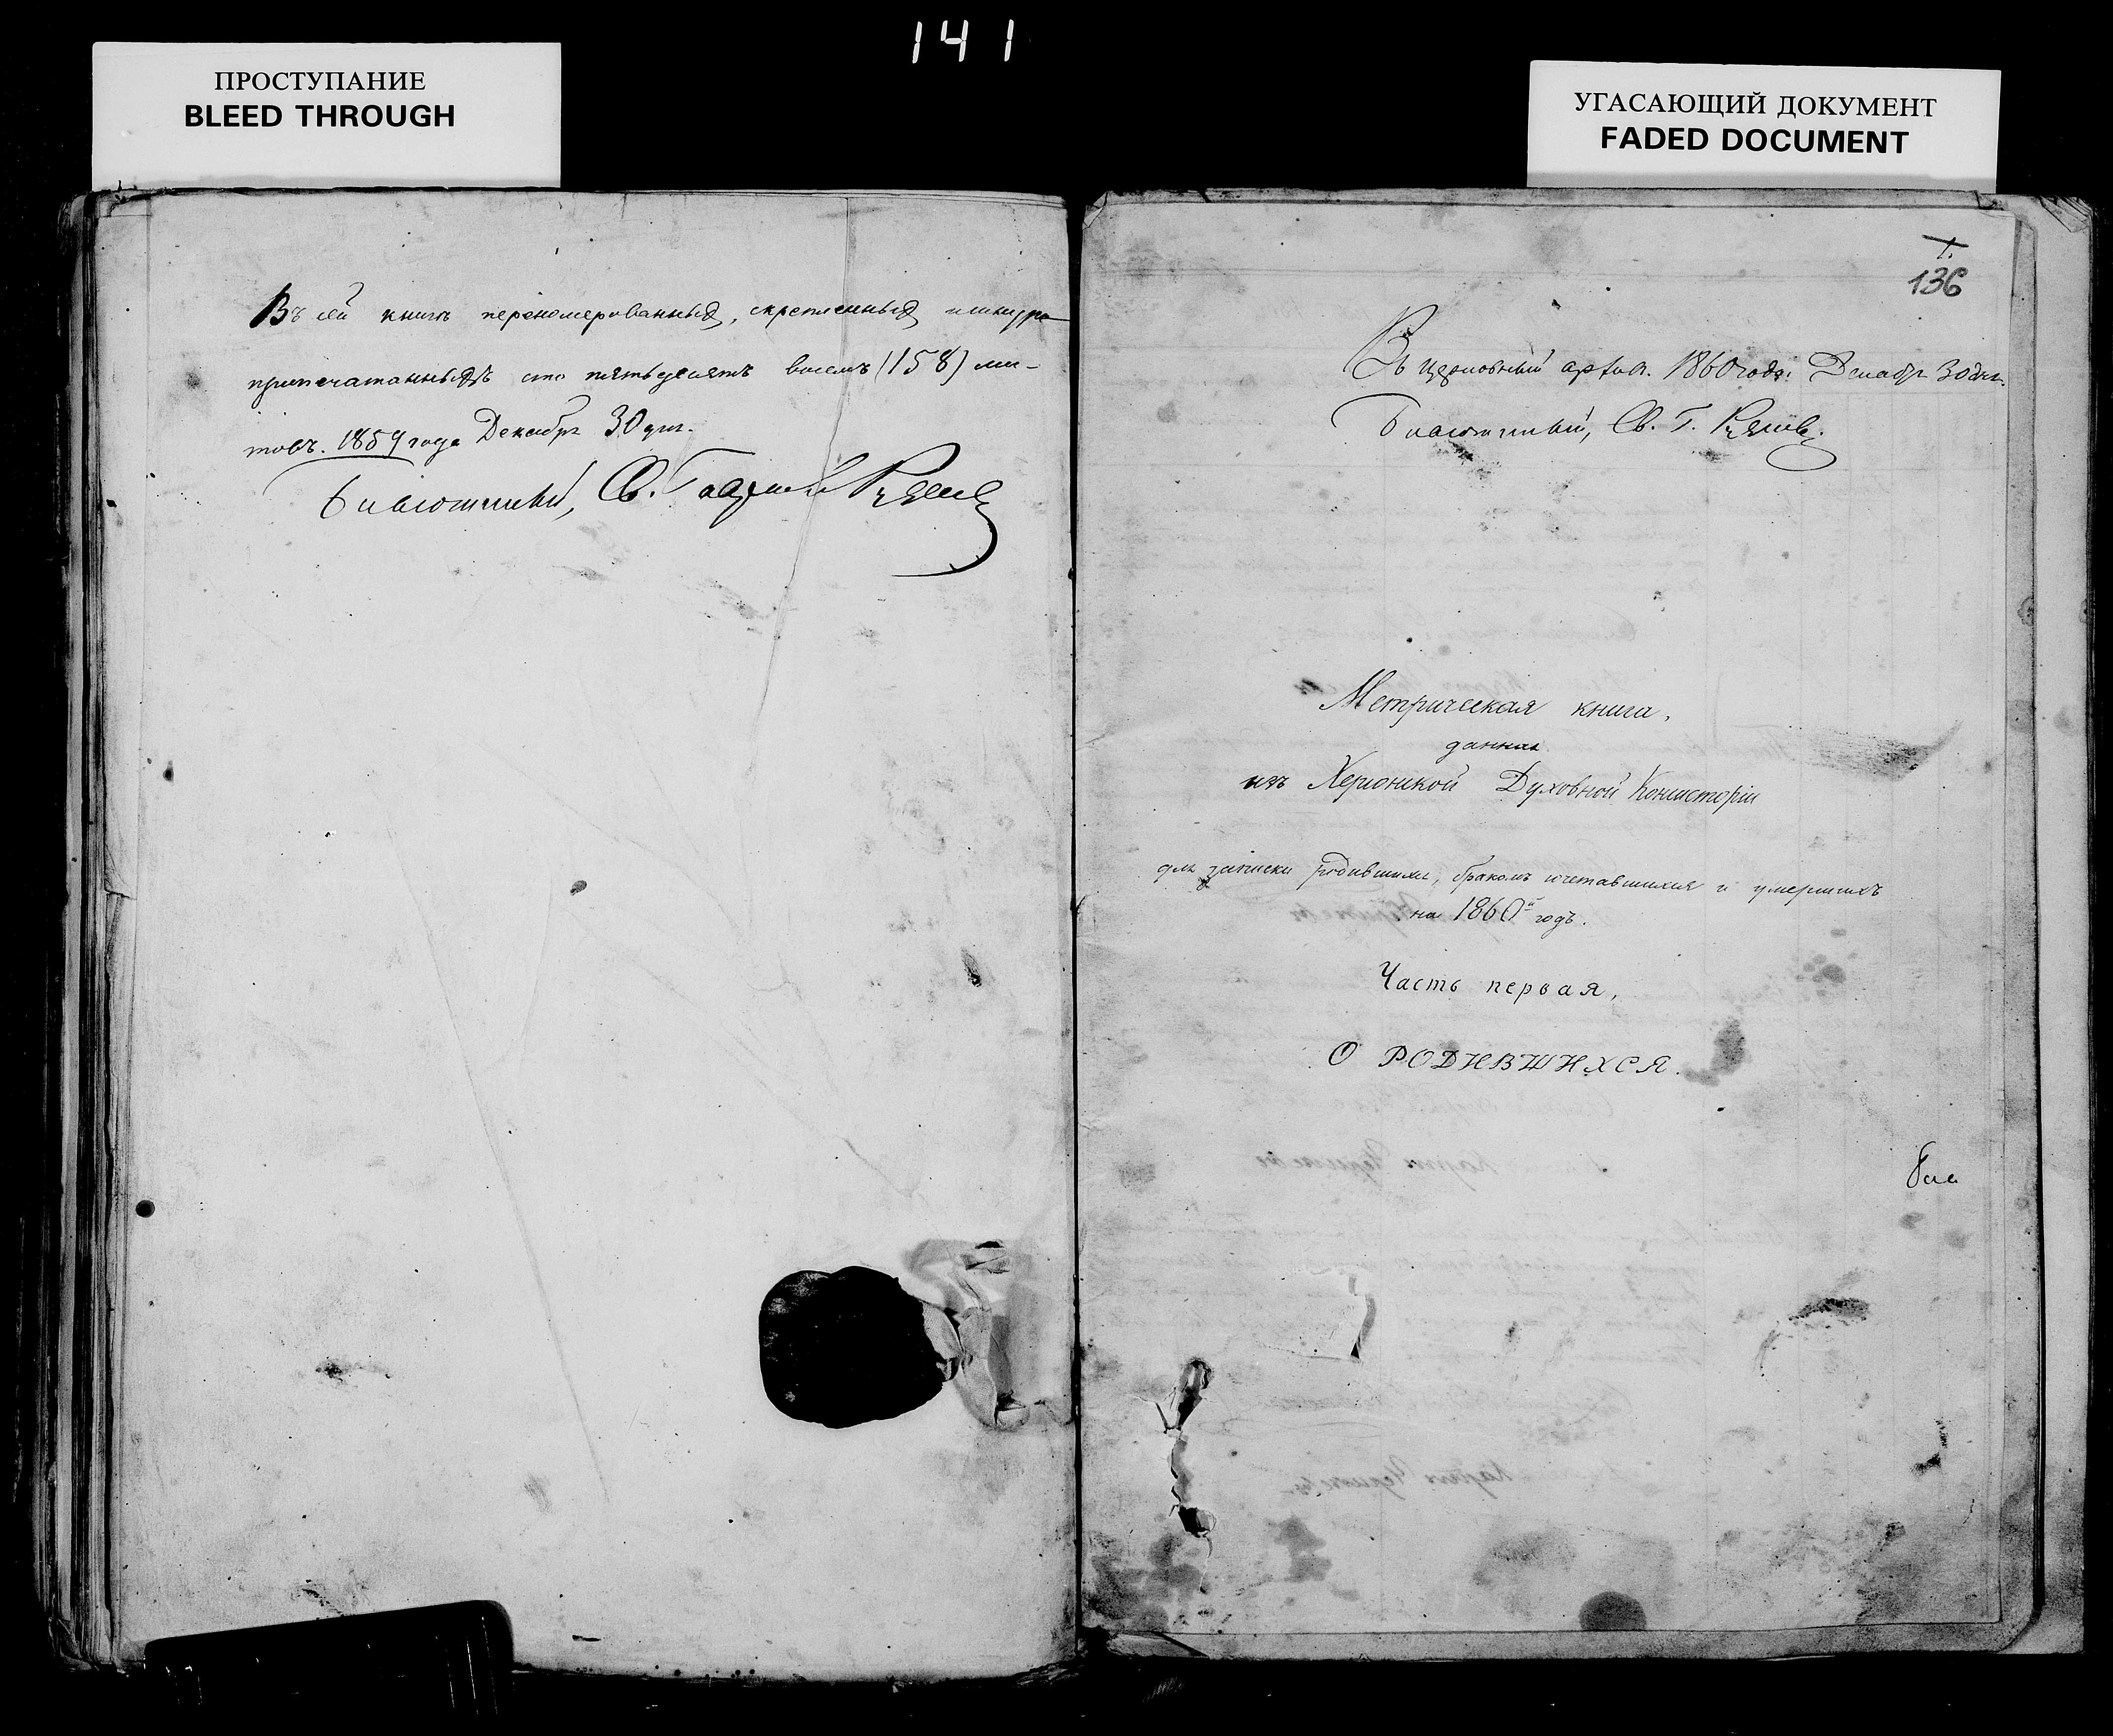 141
ПРОСТУПАНИЕ
BLEED THROUGH
УГАСАЮЩИЙ ДОКУМЕНТ
FADED DOCUMENT
Въ сей книгѣ перенумерованныхъ, скрепленныхъ и шнуро-
припечатанныхъ сто пятьдесятъ восемь (158) лис-
товъ. 1859 года Декабря 30 дня.
Благочинный, Св. Гавріилъ
1.
136
Въ церковный архивъ. 1860 года Декабря 30 дня.
Благочинный, Св. Г.
Метрическая книга,
данная
изъ Херсонской Духовной Консисторіи
для записки родившихся, бракомъ сочетавшихся и умершихъ
на 1860й годъ.
Часть первая,
О РОДИВШИХСЯ.
Бла